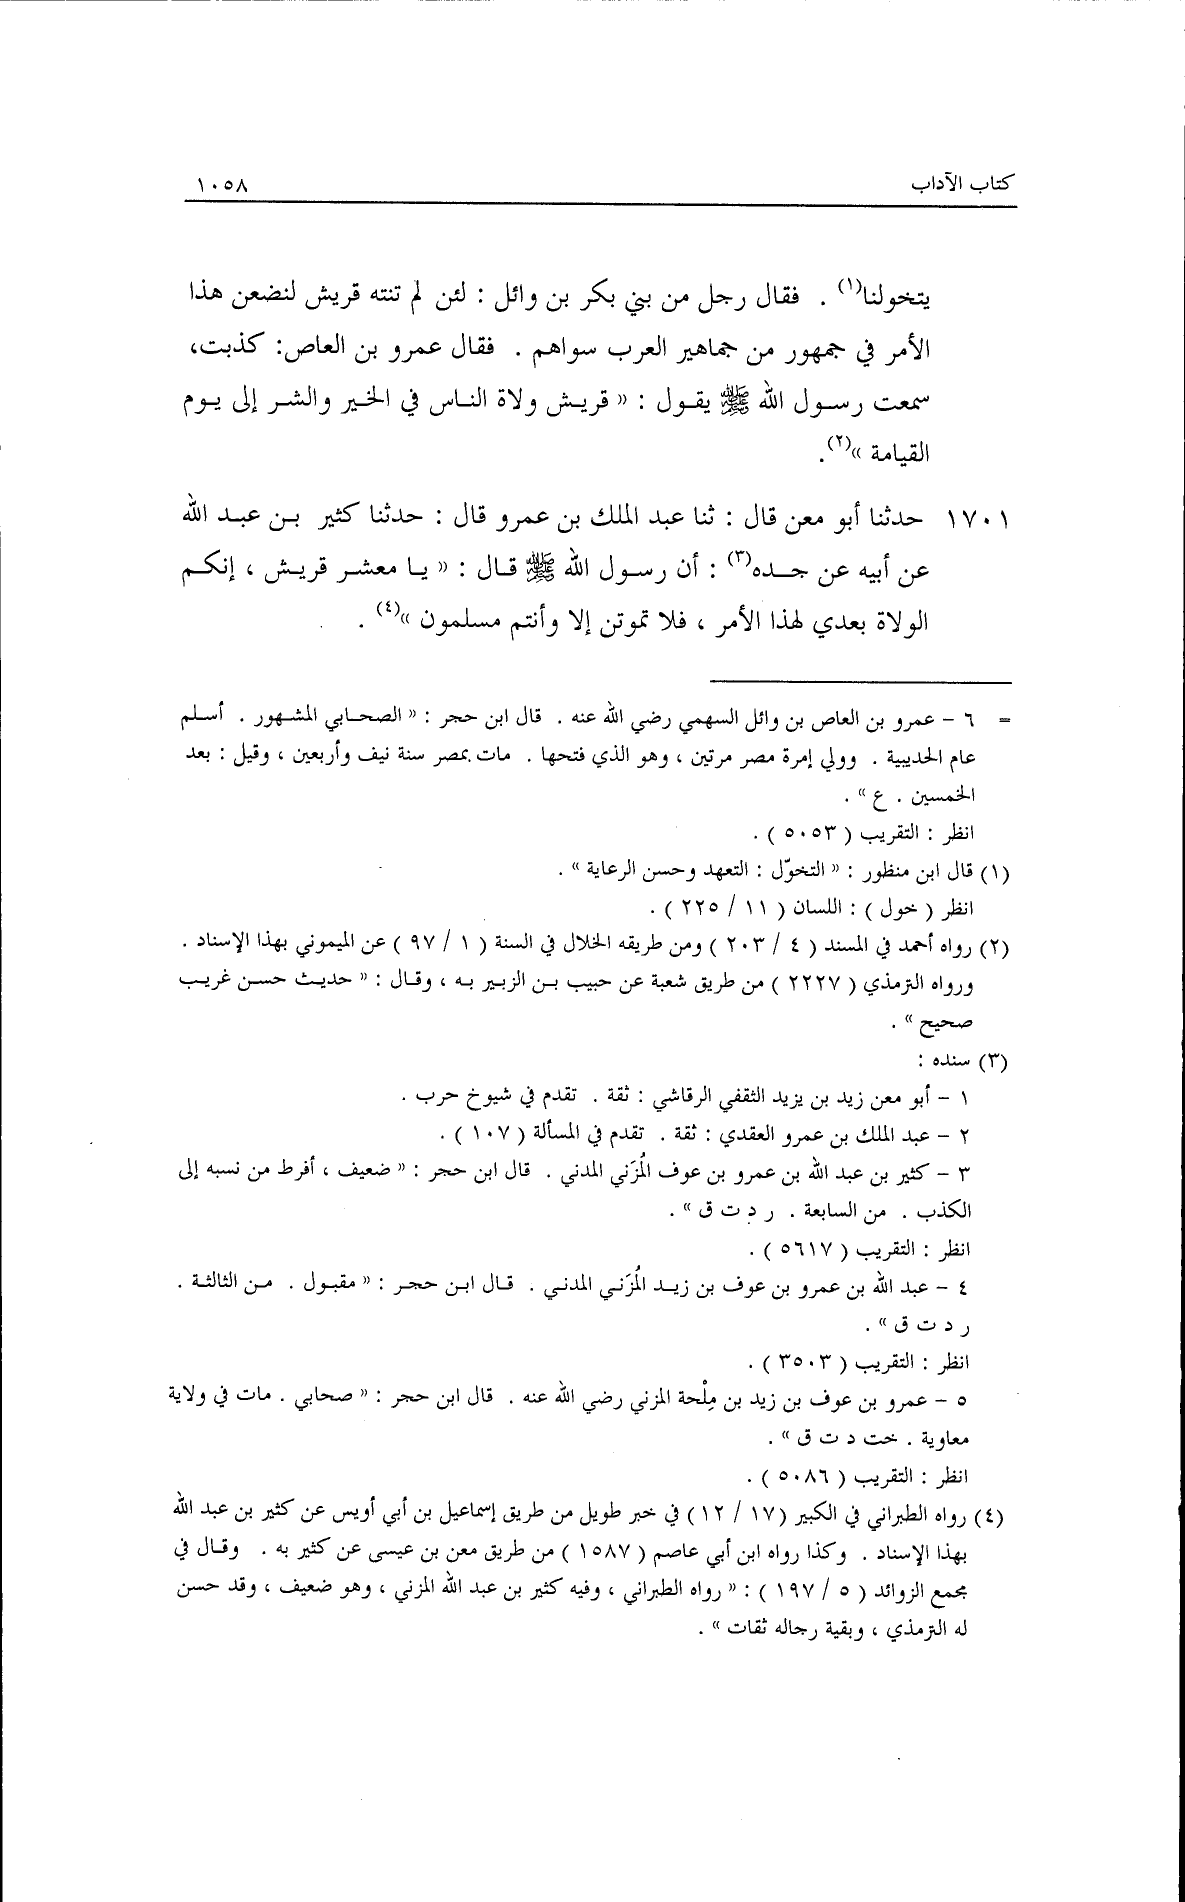 كتاب الآداب ١٠٥٨
يتخولنا(١) . فقال رجل من بني بكر بن وائل : لئن لم تنته قريش لنضعن هذا
الأمر في جمهور من جماهير العرب سواهم . فقال عمرو بن العاص: كذبت،
سمعت رسول الله ﷺ يقول : « قريش ولاة الناس في الخير والشر إلى يوم
القيامة »(٢).
١٧٠١ حدثنا أبو معن قال : ثنا عبد الملك بن عمرو قال : حدثنا كثير بن عبد الله
عن أبيه عن جده(٣) : أن رسول الله ﷺ قال : « يا معشر قريش ، إنكم
الولاة بعدي لهذا الأمر ، فلا تموتن إلا وأنتم مسلمون »(٤) .
= ٦ – عمرو بن العاص بن وائل السهمي رضي الله عنه . قال ابن حجر : « الصحابي المشهور . أسلم
عام الحديبية . وولي إمرة مصر مرتين ، وهو الذي فتحها . مات بمصر سنة نيف وأربعين ، وقيل : بعد
الخمسين . ع » .
انظر : التقريب ( ٥٠٥٣ ) .
(١) قال ابن منظور : « التخوّل : التعهد وحسن الرعاية » .
انظر ( خول ) : اللسان ( ١١ / ٢٢٥ ) .
(٢) رواه أحمد في المسند ( ٤ / ٢٠٣ ) ومن طريقه الخلال في السنة ( ١ / ٩٧ ) عن الميموني بهذا الإسناد .
ورواه الترمذي ( ٢٢٢٧ ) من طريق شعبة عن حبيب بن الزبير به ، وقال : « حديث حسن غريب
صحيح » .
(٣) سنده :
١ – أبو معن زيد بن يزيد الثقفي الرقاشي : ثقة . تقدم في شيوخ حرب .
٢ – عبد الملك بن عمرو العقدي : ثقة . تقدم في المسألة ( ١٠٧ ) .
٣ – كثير بن عبد الله بن عمرو بن عوف المُزَني المدني . قال ابن حجر : « ضعيف ، أفرط من نسبه إلى
الكذب . من السابعة . ر د ت ق » .
انظر : التقريب ( ٥٦١٧ ) .
٤ – عبد الله بن عمرو بن عوف بن زيد المُزَني المدني . قال ابن حجر : « مقبول . من الثالثة .
ر د ت ق » .
انظر : التقريب ( ٣٥٠٣ ) .
٥ – عمرو بن عوف بن زيد بن مِلْحة المزني رضي الله عنه . قال ابن حجر : « صحابي . مات في ولاية
معاوية . خت د ت ق » .
انظر : التقريب ( ٥٠٨٦ ) .
(٤) رواه الطبراني في الكبير (١٧ / ١٢) في خبر طويل من طريق إسماعيل بن أبي أويس عن كثير بن عبد الله
بهذا الإسناد . وكذا رواه ابن أبي عاصم ( ١٥٨٧ ) من طريق معن بن عيسى عن كثير به . وقال في
مجمع الزوائد ( ٥ / ١٩٧ ) : « رواه الطبراني ، وفيه كثير بن عبد الله المزني ، وهو ضعيف ، وقد حسن
له الترمذي ، وبقية رجاله ثقات » .